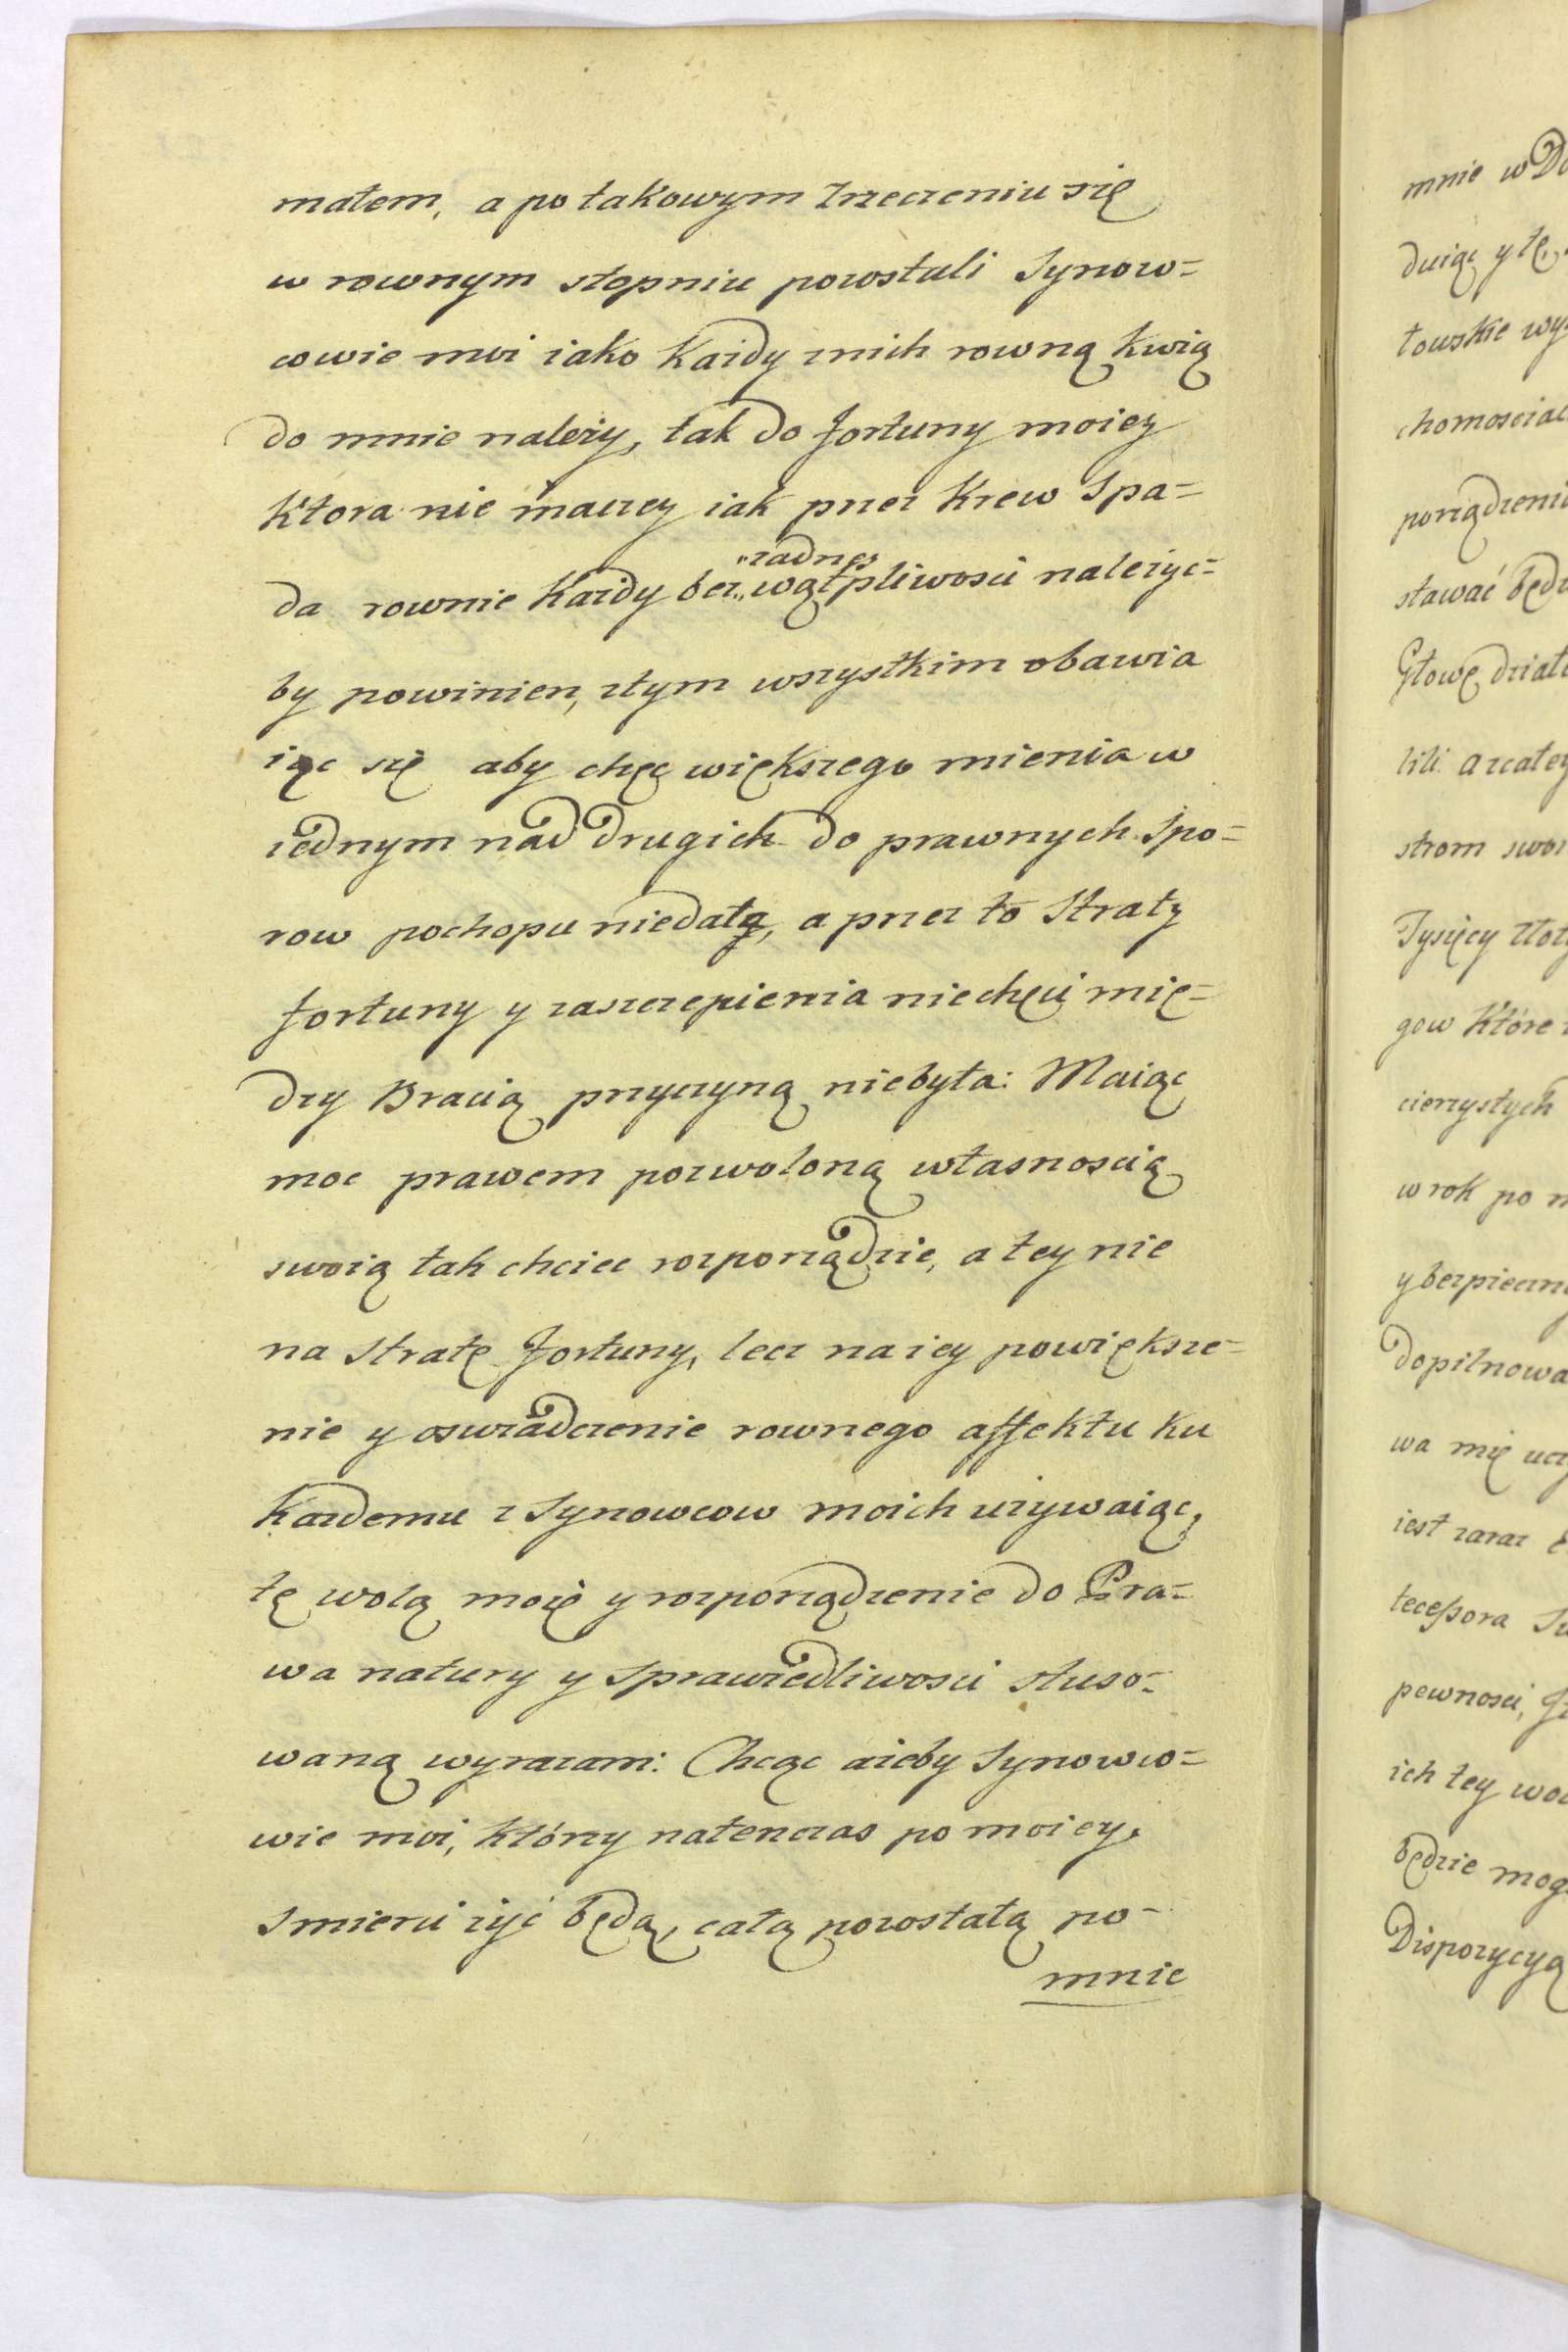 małem, a po takowym zrzeczeniu się
w rownym stopniu powstali Synow=
cowie moi iako Kaidy znich rowną kwią
do mnie należy, tak do fortuny moiey
Ktora nie inaczey iak przez Krew Spa=
da rownie Kazdy bez „żadney„ wątpliwosci należyc=
by powinien, ztym wszystkim obawia
iąc się aby chęc większego mienia w
iednym nad drugich do prawnych Spo=
row pochopu niedała, a przez to Straty
fortuny y zaszczepienia niechęci mię=
dzy Bracią przyczyną niebyła: Maiąc
moc prawem pozwoloną własnoscią
swoią tak chciec rozporządzic, a tey nie
na Stratę fortuny, lecz na iey powiększe=
nie y oswiadczenie rownego affektu ku
Kazdemu z Synowcow moich uzywaiąc,
tę wolą moię y rozporządzenie do Pra=
wa natury y Sprawiedliwosci stuso=
waną wyrazam: Chcąc aieby Synowco=
wie moi, którzy natenczas po moiey
Smierci żyć będą, całą pozostałą po=
mnie
mnie w Do
duiąc y tę
towskie wy
chomosciac
porządzeni
stawać będz
Głowę, działu
lili. a z całey
strom swoi
Tysięcy Złoty
gow Które
cierzystych
w rok po m
y bezpieczny
dopilnowa
wa mię ucz
iest zaraz
tecessora Su
pewnosci,
ich tey wol
będzie mog
Dispozycyą